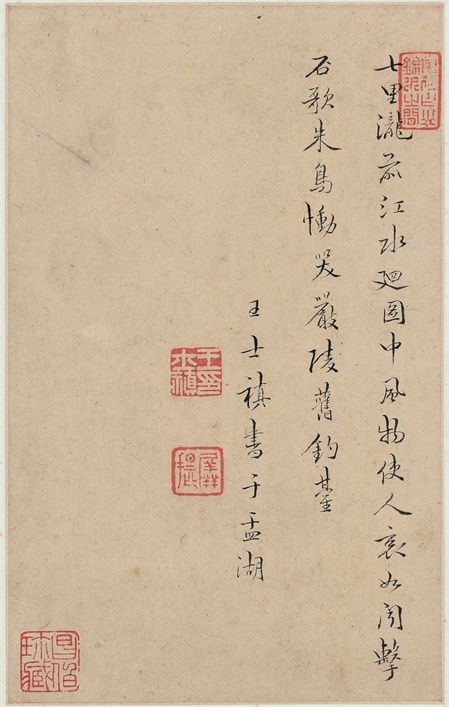 七里瀧前江水廻圖中風物使人哀如聞擊
石歌朱鳥慟哭嚴陵舊釣臺
王士禛書于盂湖
王印士禛